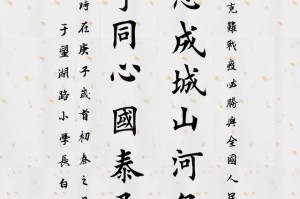 克難戰疫必勝與全國人民
志成城山河
手同心國泰
時在庚子歲首初春之
于望湖路小學長白